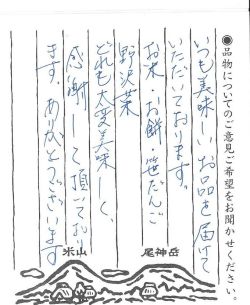 ●品物についてのご意見ご希望をお聞かせください。
いつも美味しいお品を届けて
いただいております。
お米・お餅・笹だんご
野沢菜
どれも太変美味しく、
感謝して頂いており
ます。ありがとうございます
尾神岳
米山